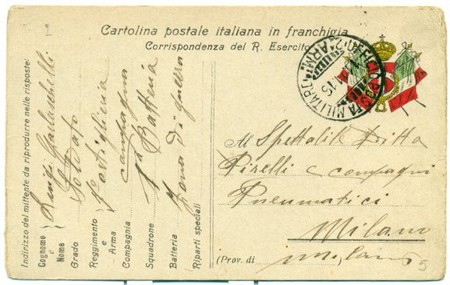 1
Cartolina postale italiana in franchigia
Corrispondenza del R. Esercito
UFFICIO POSTA MILITARE
Indirizzo del mittente da riprodurre nelle risposte:
Cognome Luigi
Nome
Grado Soldato
Reggimento e Arma Artiglieria
Compagnia campagna
Squadrone
Batteria Batteria
Riparti speciali Zona di guerra
Al Spettabile Ditta
Pirelli e compagni
Pneumatici
Milano
(Prov. di Milano
5